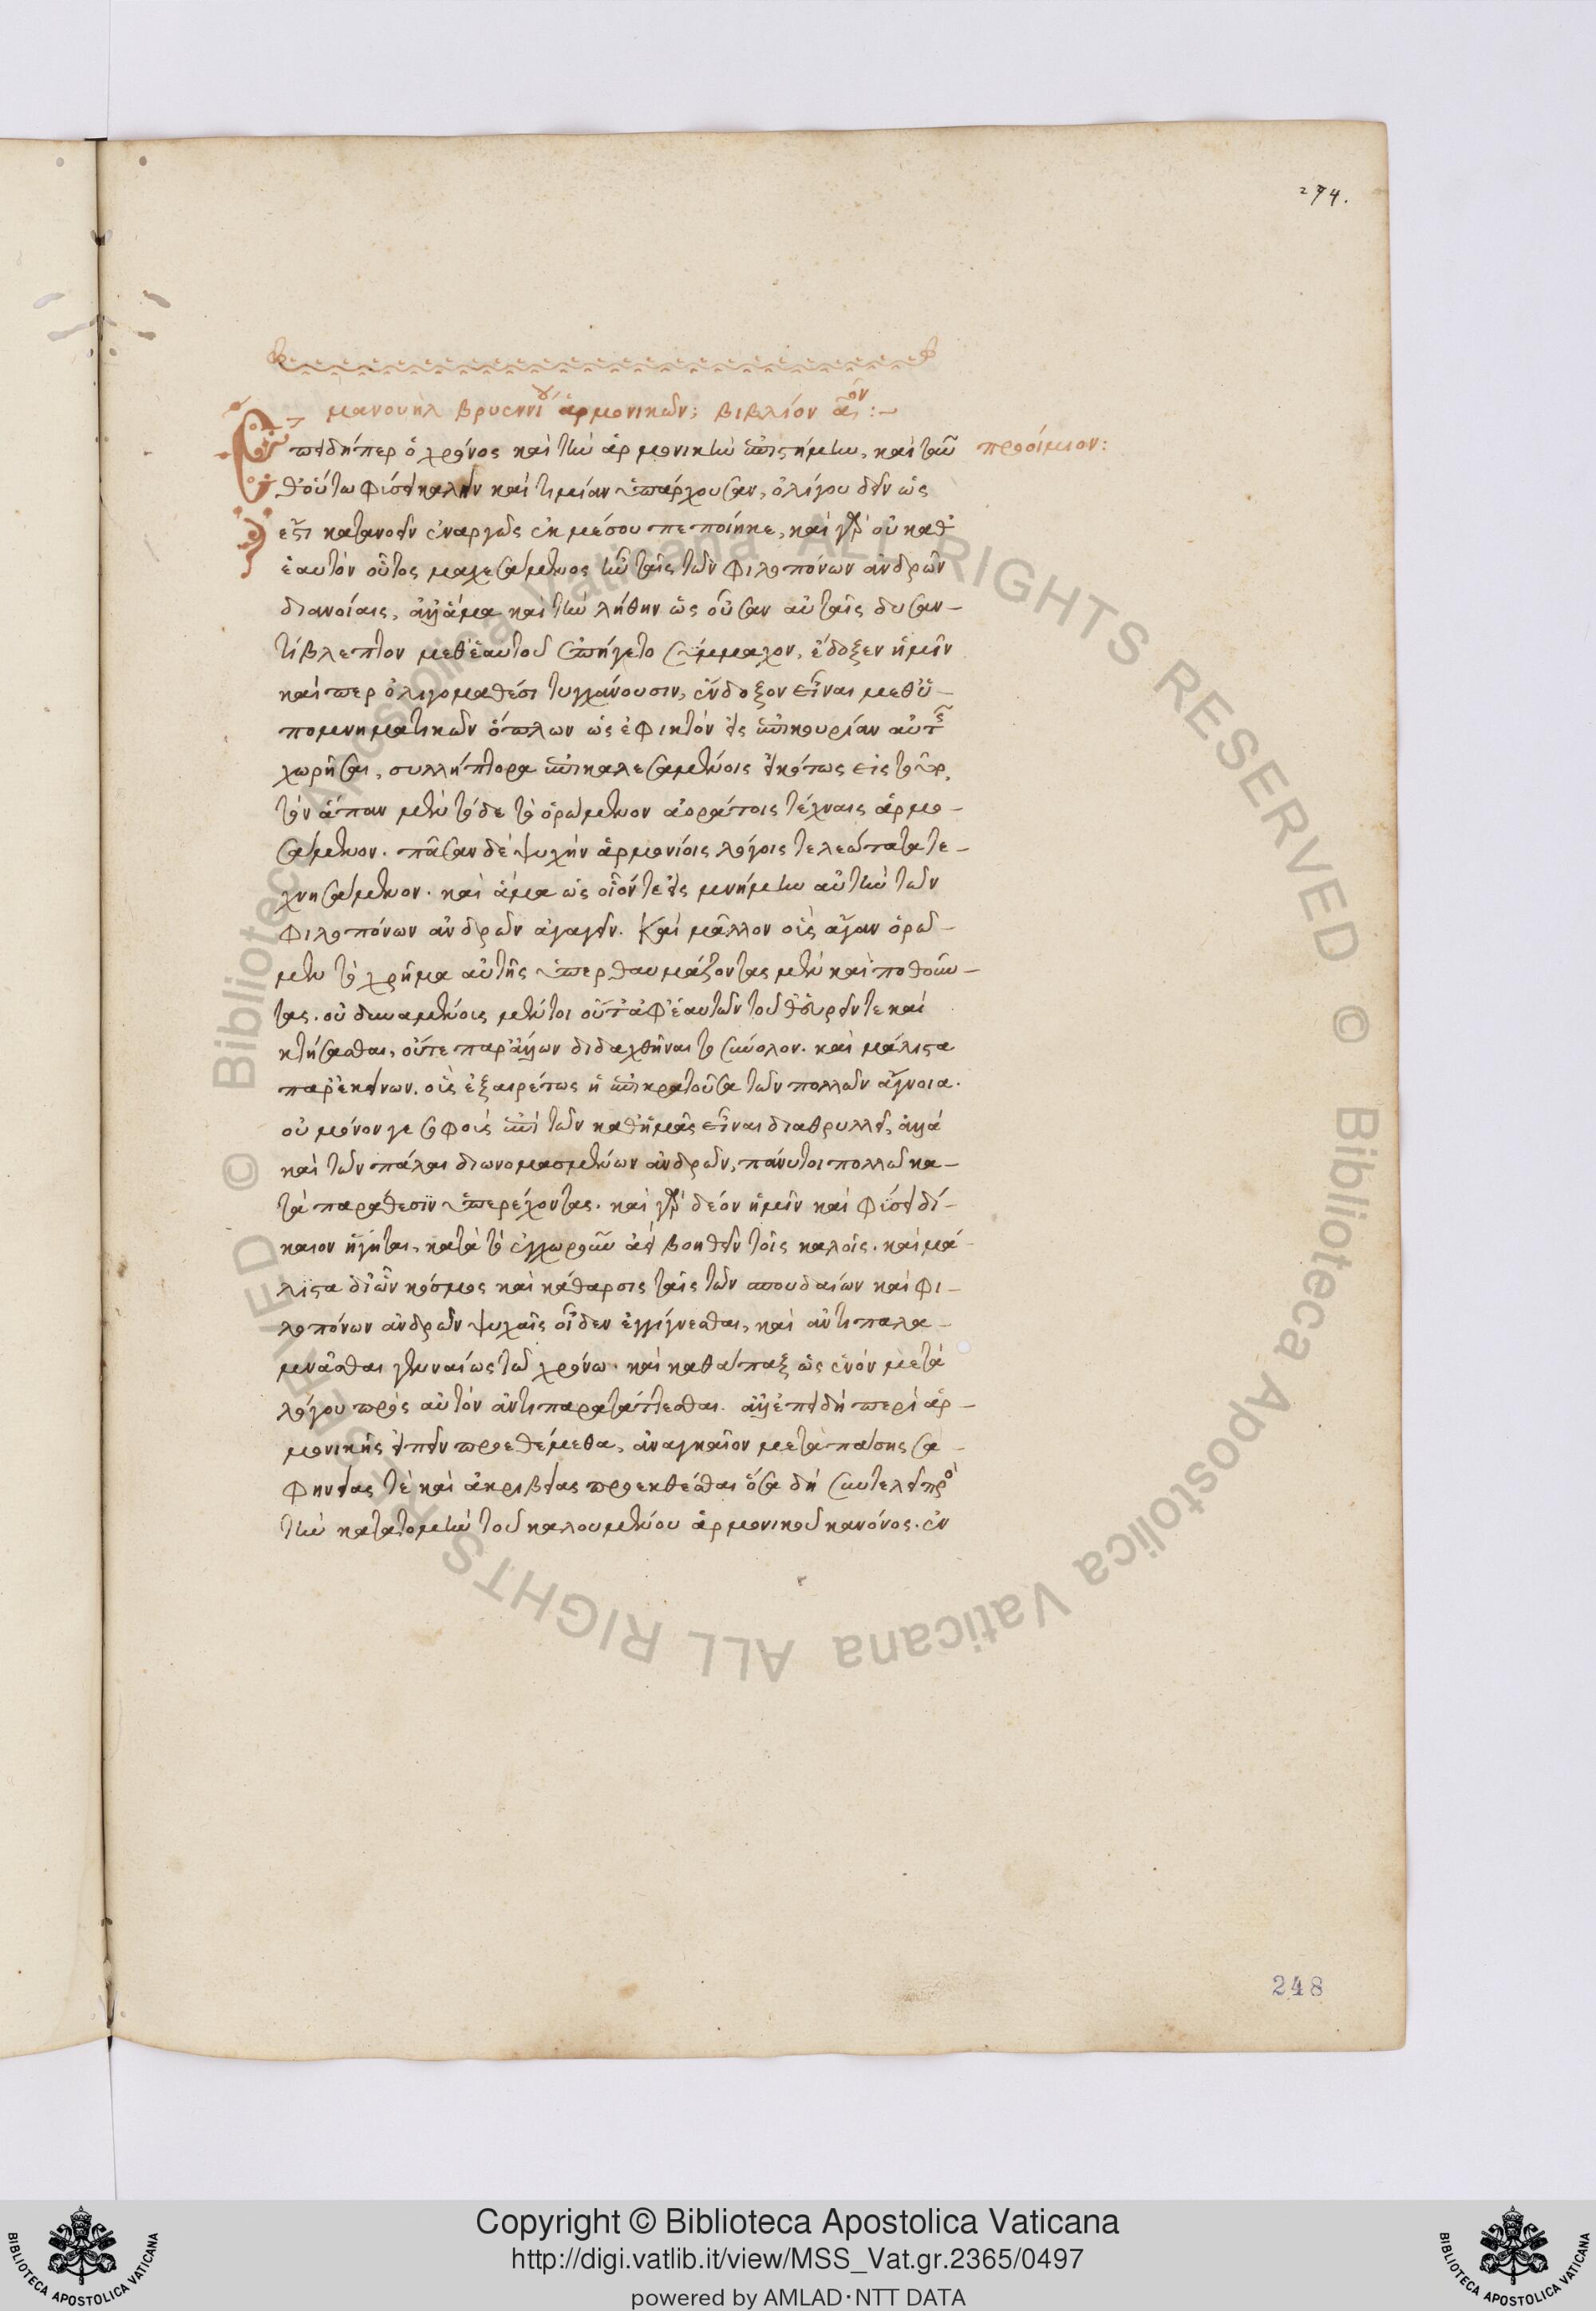 274.
μανουὴλ βρυεννίου ἁρμονικῶν; βιβλίον αον :~
Επειδήπερ ὁ χρόνος καὶ τὴν ἁρμονικὴν ἐπιστήμην, καὶ ταῦ
προοίμιον:
θ' οὕτω φύσει καλὴν καὶ τιμίαν ὑπάρχουσαν, ὀλίγου δεῖν ὡς
ἔστι κατανοεῖν ἐναργῶς ἐκ μέσου πεποίηκε, καὶ γὰρ οὐ καθ'
ἑαυτὸν οὗτος μαχεσάμενος ἦν ταῖς τῶν φιλοπόνων ἀνδρῶν
διανοίαις, ἀλλ' ἅμα καὶ τὴν λήθην ὡς οὖσαν αὐταῖς δυσαν-
τίβλεπτον μεθ' ἑαυτοῦ ἐπήγετο σύμμαχον, ἔδοξεν ἡμῖν
καί περ ὀλιγομαθέσι τυγχάνουσιν, ἔνδοξον εἶναι μεθ' ὑ-
πομνηματικῶν ὅπλων ὡς ἐφικτὸν εἰς ἐπικουρίαν αὐτῆς
χωρῆσαι, συλλήπτορα ἐπικαλεσαμένοις εἰκότως εἰς τοῦρ,
τὸν ἅπαν μὲν τόδε τὸ ὁρώμενον ἀορράτοις τέχναις ἁρμο-
σάμενον. πᾶσαν δὲ ψυχὴν ἁρμονίοις λόγοις τελεώτατα τε-
χνησάμενον. καὶ ἅμα ὡς οἷόν τε εἰς μνήμην αὐτὴν τῶν
φιλοπόνων ἀνδρῶν ἀγαγεῖν. Καὶ μᾶλλον οἷς ἄγαν ὁρῶ-
μεν τὸ χρῆμα αὐτῆς ὑπερθαυμάζοντας μὲν καὶ ποθοῦν-
τας. οὐ δυναμένοις μέντοι οὔτ' ἀφ' ἑαυτῶν τοῦθ' εὑρεῖν τε καὶ
κτήσασθαι, οὔτε παρ' ἄλλων διδαχθῆναι τὸ σύνολον. καὶ μάλιστα
παρ' ἐκείνων. οἷς ἐξαιρέτως ἡ ἐπικρατοῦσα τῶν πολλῶν ἄγνοια.
οὐ μόνον γε σοφοὺς ἐπὶ τῶν καθ' ἡμᾶς εἶναι διαθρυλλεῖ, ἀλλὰ
καὶ τῶν πάλαι διωνομασμένων ἀνδρῶν, πάνυτοι πολλῶ κα-
τὰ παράθεσιν ὑπερέχοντας. καὶ γὰρ δέον ἡμῖν καὶ φύσει δί-
καιον ἥγηται, κατὰ τὸ ἐγχωροῦν ἀεὶ βοηθεῖν τοῖς καλοῖς. καὶ μά-
λιστα δι' ὧν κόσμος καὶ κάθαρσις ταῖς τῶν σπουδαίων καὶ φι-
λοπόνων ἀνδρῶν ψυχαῖς οἶδεν ἐγγίγνεσθαι, καὶ ἀντιπαλα-
μνᾶσθαι γενναίως τῶ χρόνω. καὶ καθάπαξ ὡς ἐνὸν μετὰ
λόγου πρὸς αὐτὸν ἀντιπαρατάττεσθαι. ἀλλ' ἐπειδὴ περὶ ἁρ-
μονικῆς εἰπεῖν προεθέμεθα, ἀναγκαῖον μετὰ πάσης σα-
φηνείας τὲ καὶ ἀκριβείας προεκθέσθαι ὅσα δὴ συντελεῖ πρὸ
τὴν κατατομὴν τοῦ καλουμένου ἁρμονικοῦ κανόνος. ἐν
248
Copyright © Biblioteca Apostolica Vaticana
http://digi.vatlib.it/view/MSS_Vat.gr.2365/0497
powered by AMLAD·NTT DATA